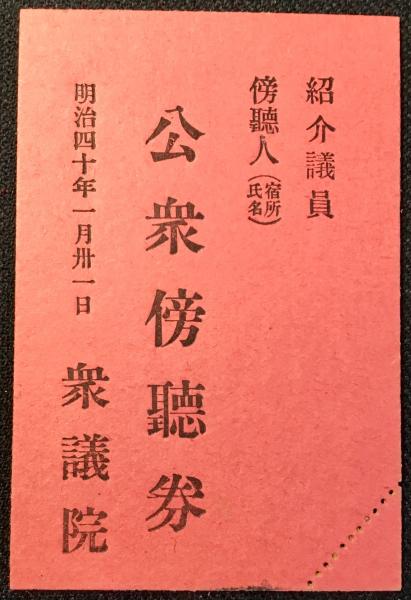 紹介議員
傍聽人(宿所氏名)
公衆傍聽券
明治四十年一月卅一日
衆議院